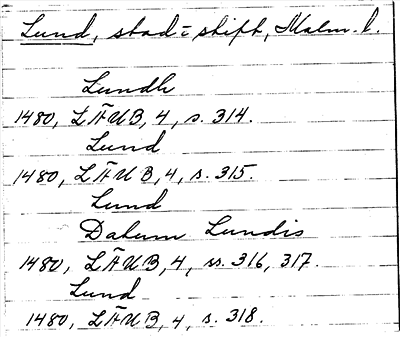 Lund, stad = skift, Malm. l.
Lundh
1480, LÄUB, 4, s. 314.
Lund
1480, LÄUB, 4, s. 315.
Lund
Datum Lundis
1480, LÄUB, 4, ss. 316, 317.
Lund
1480, LÄUB, 4, s. 318.